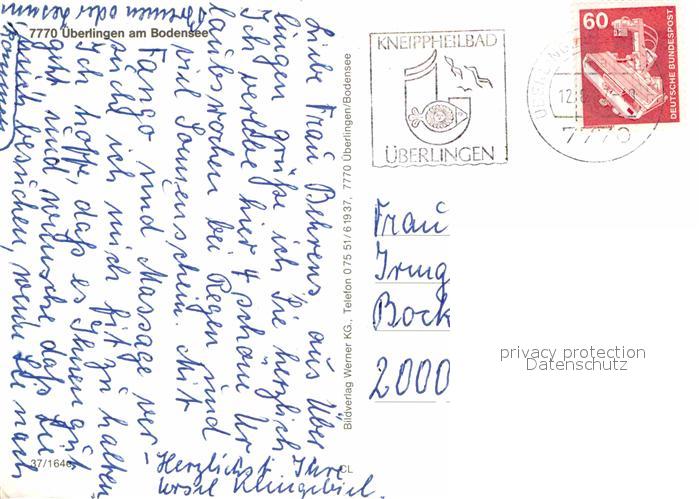 7770 Überlingen am Bodensee
Liebe Frau Behrens, aus Über
lingen grüße ich Sie herzlich
Ich verlebe hier 4 schöne Ur
laubswochen bei Regen und
viel Sonnenschein. Mit
Fango und Massage ver-
suche ich mich fit zu halten
Ich hoffe, daß es Ihnen gut
geht und wünsche, daß Sie
mich besuchen, wenn Sie nach
Bremen oder
kommen
Herzlichst Ihre
Ursel Klingebiel.
37/164
CL
Bildverlag Werner KG., Telefon 0 75 51/6 19 37, 7770 Überlingen/Bodensee
KNEIPPHEILBAD
ÜBERLINGEN
7770
60
DEUTSCHE BUNDESPOST
Frau
Irmg
Bock
2000
privacy protection
Datenschutz